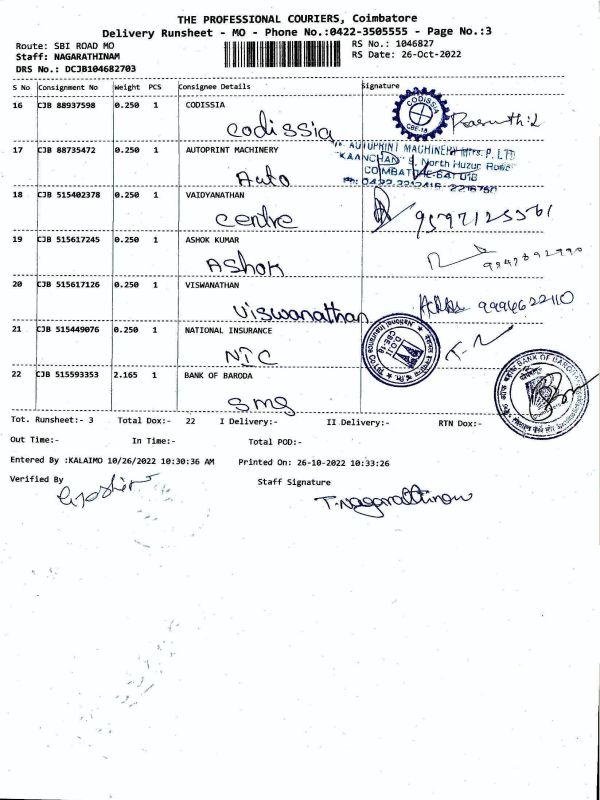 THE PROFESSIONAL COURIERS, Coimbatore
Delivery Runsheet - MO - Phone No.:0422-3505555 - Page No.:3
Route: SBI ROAD MO
RS No.: 1046827
Staff: NAGARATHINAM
RS Date: 26-Oct-2022
DRS No.: DCJB104682703
S No Consignment No Weight PCS Consignee Details Signature
16 CJB 88937598 0.250 1 CODISSIA
Codissia
CODISSIA
CBE-18
17 CJB 88735472 0.250 1 AUTOPRINT MACHINERY
Auto
AUTOPRINT MACHINERY Mfrs. P. LTD
"KAANCHAN" 9, North Huzur Road
COIMBATORE-641 018
18 CJB 515402378 0.250 1 VAIDYANATHAN
Centre
19 CJB 515617245 0.250 1 ASHOK KUMAR
Ashok
20 CJB 515617126 0.250 1 VISWANATHAN
Viswanathan
9994622110
21 CJB 515449076 0.250 1 NATIONAL INSURANCE
NIC
22 CJB 515593353 2.165 1 BANK OF BARODA
SMS
BANK OF BARODA
Tot. Runsheet:- 3 Total Dox:- 22 I Delivery:- II Delivery:- RTN Dox:-
Out Time:- In Time:- Total POD:-
Entered By :KALAIMO 10/26/2022 10:30:36 AM Printed On: 26-10-2022 10:33:26
Verified By
Staff Signature
T. Nagarathinam